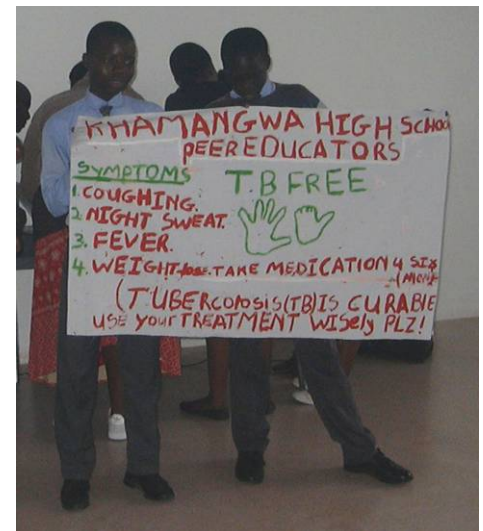 KHAMANGWA HIGH SCHOOL
PEER EDUCATORS
SYMPTOMS
T.B FREE
1. COUGHING.
2. NIGHT SWEAT.
3. FEVER.
4. WEIGHT loss. TAKE MEDICATION 4 SIX
(MONT
(TUBERCOLOSIS(TB) IS CURABLE
USE your TREATMENT WISely PLZ!